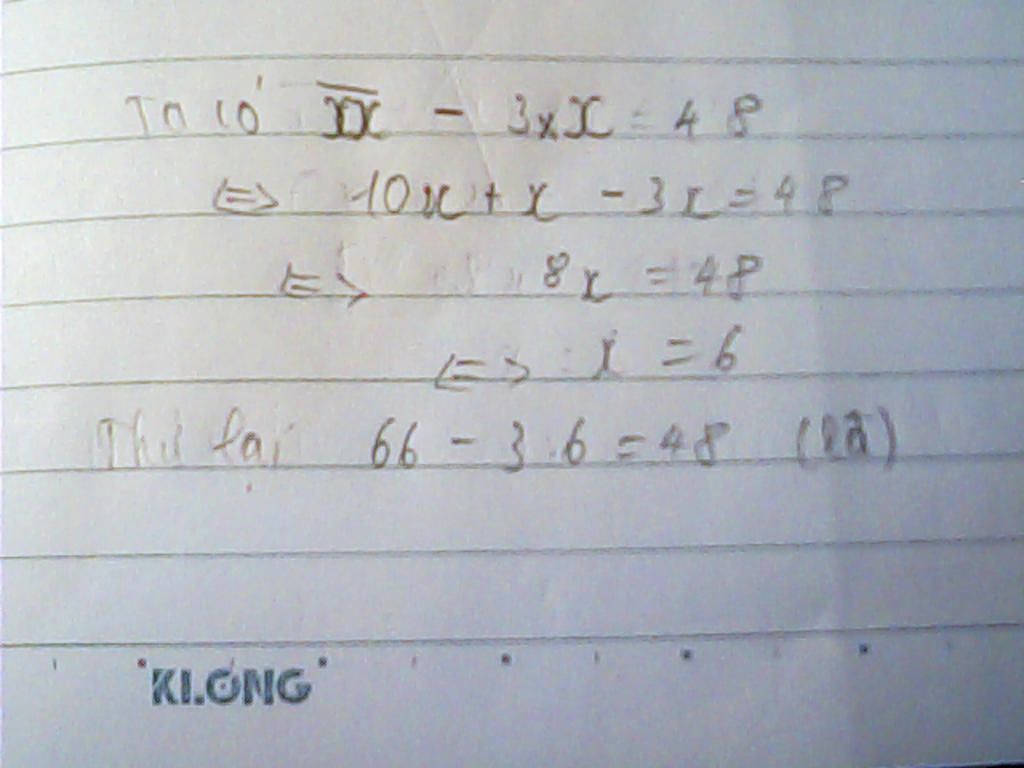 Ta có $\overline{xx}$ - 3 x x = 48
<=> 10x + x - 3x = 48
<=> 8x = 48
<=> x = 6
Thử lại 66 - 3.6 = 48
KLONG